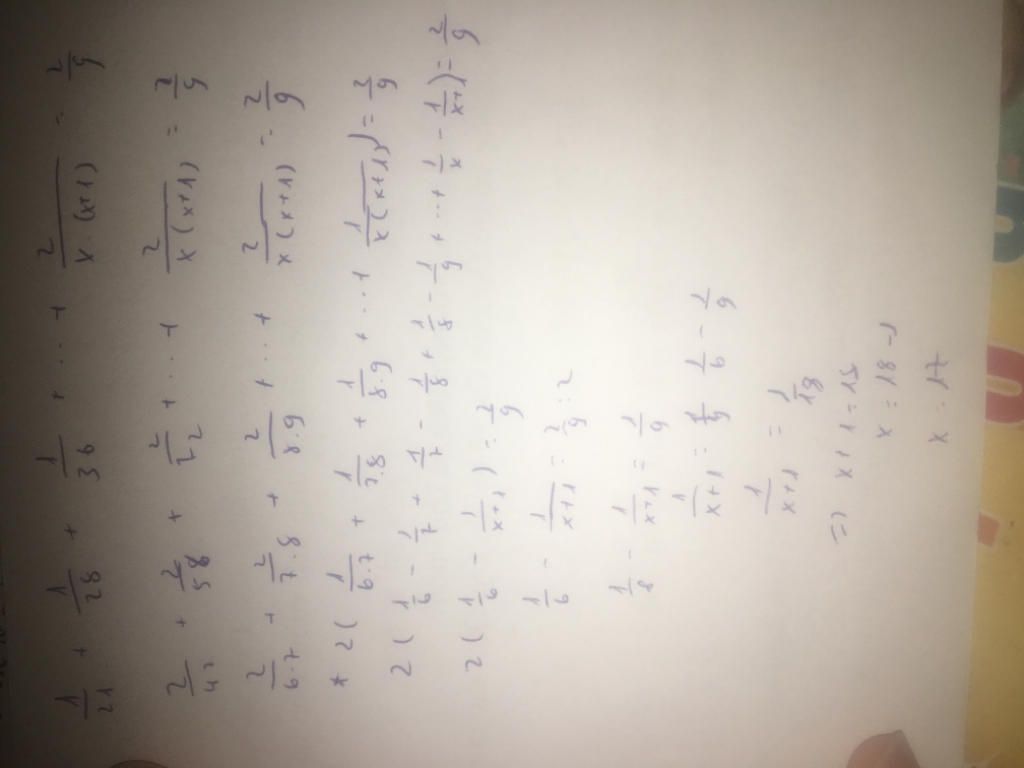 1/21 + 1/28 + 1/36 + ... + 2/x.(x+1) = 2/9
2/42 + 2/56 + 2/72 + ... + 2/x(x+1) = 2/9
2/6.7 + 2/7.8 + 2/8.9 + ... + 2/x(x+1) = 2/9
* 2(1/6.7 + 1/7.8 + 1/8.9 + ... + 1/x(x+1)) = 2/9
2(1/6 - 1/7 + 1/7 - 1/8 + 1/8 - 1/9 + ... + 1/x - 1/x+1) = 2/9
2(1/6 - 1/x+1) = 2/9
1/6 - 1/x+1 = 2/9 : 2
1/8 - 1/x+1 = 1/9
1/x+1 = 1/6 - 1/9
1/x+1 = 1/18
=) x+1 = 15
x = 18 - 1
x = 17